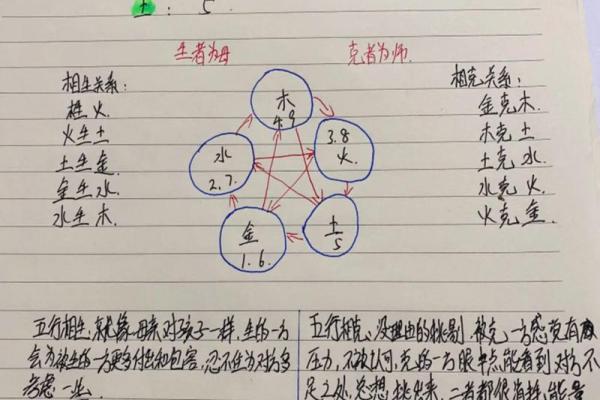 土: 5
生者为母 克者为师.
相生关系:
木生火.
火生土
土生金.
金生水.
水生木.
木
4.9
3.8
火.
土
5
金
1.6.
水
2.7.
相克关系:
金克木.
木克土
土克水.
水克火.
火克金.
五行相生,就像母亲对孩子一样,生的一方
会为被生的一方更多付出和包容,忍不住为对方多
考虑一些.
五行相克、没理由的挑剔.被克一方感觉有
压力,不被认可,克的一方眼中总能看到对方不
足之处,总想挑出来,二者都很消耗能量